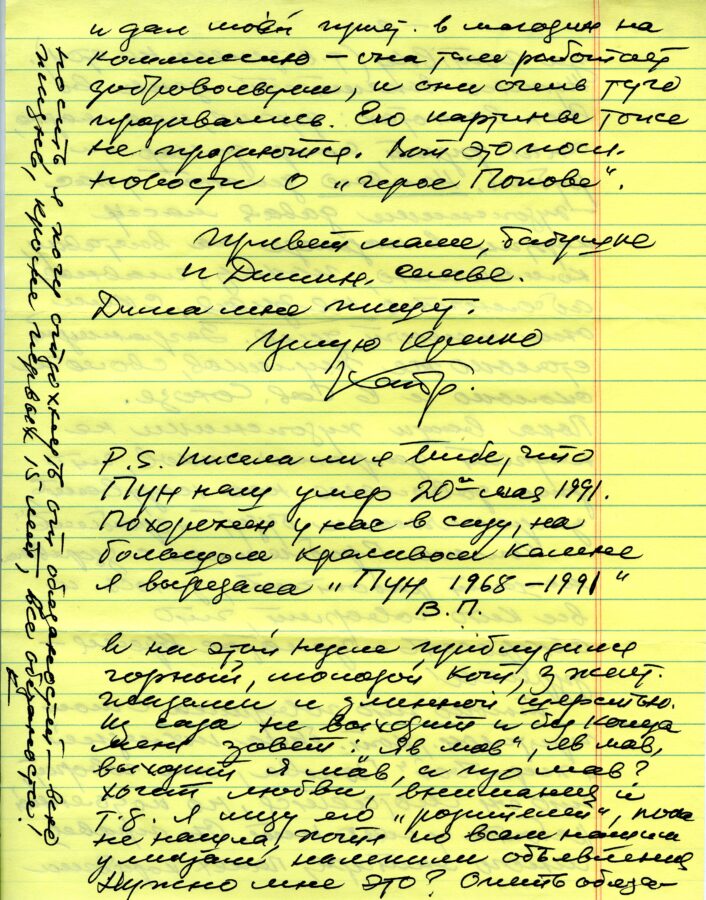 и дал моей прият. в магазин на
комиссию – она там работает
добровольцем, и они очень туго
продавались. Его картины тоже
не продаются. Вот это посл.
новости о „герое Попове“.
Привет маме, бабушке
и Диминой семье.
Дима мне пишет.
Целую крепко
P.S. Писала ли я тебе, что
Пун наш умер 20го мая 1991.
Похоронен у нас в саду, на
большом красивом камне
я вырезала „Пун 1968–1991“
В.П.
И на этой неделе приблудился
чорный, молодой кот, з желт.
глазами и длинной шерстью.
Из сада не выходит и без конца
меня зовет: „Яв мав“, яв мав,
выходит я мав, а что мав?
хочет любви, внимания и
т.д. Я ищу его „родителей“, пока
не нашла, хотя по всем нашим
улицам налепили объявления
Нужно мне это? Опять обяза-
ности, я хочу отдохнуть от обязаностей – всю
жизнь, кроме первых 15 лет, все обязаности!